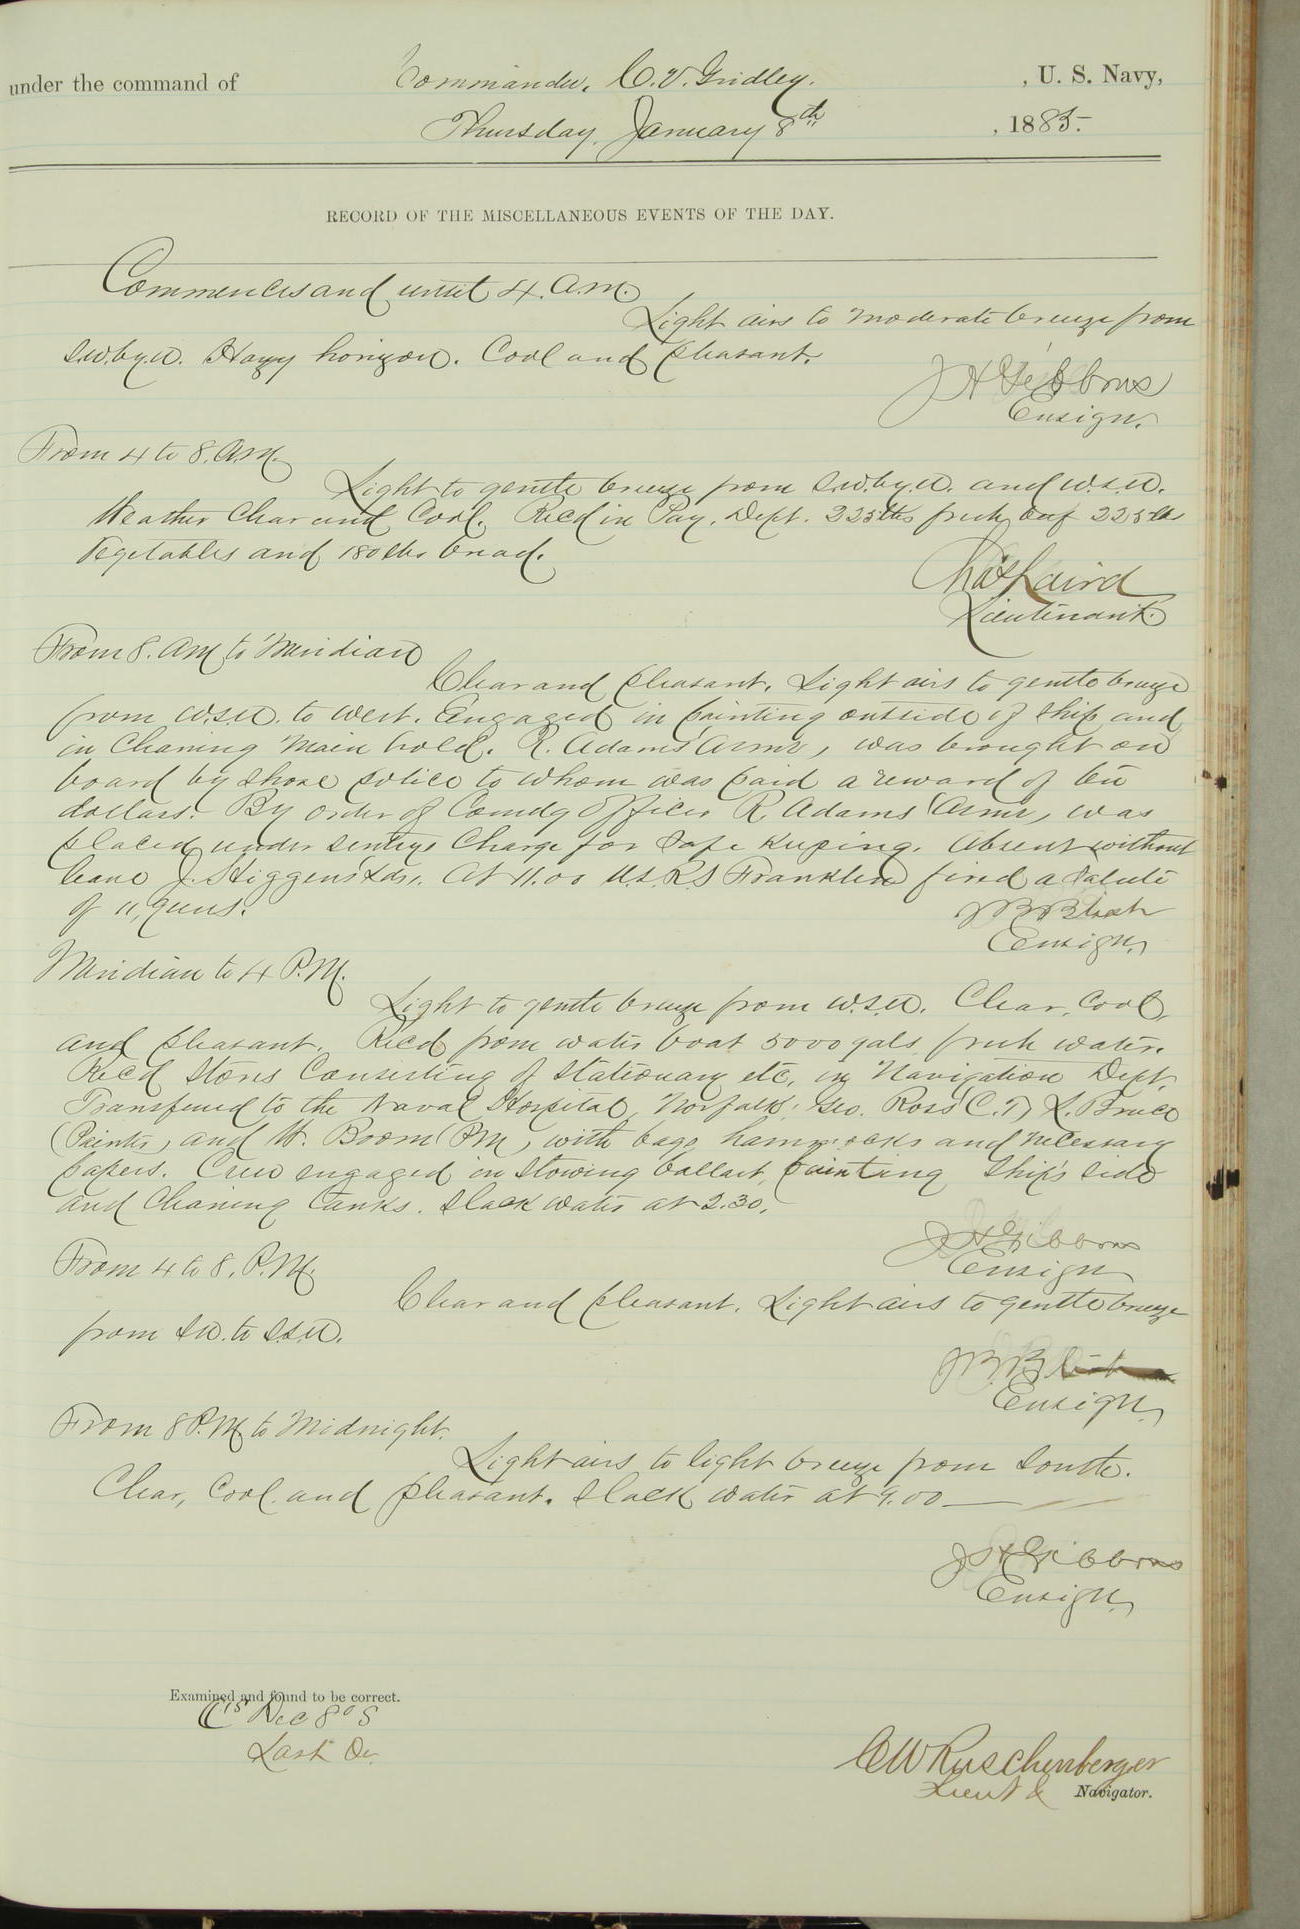 under the command of Commander, C. V. Gridley. , U. S. Navy,
Thursday, January 8th , 1885.
RECORD OF THE MISCELLANEOUS EVENTS OF THE DAY.
Commences and until 4. a.m.
Light airs to moderate breeze from
S.W. by W. Hazy horizon. Cool and pleasant.
J H Gibbons
Ensign.
From 4 to 8. A.M.
Light to gentle breeze from S.W. by W. and W.S.W.
Weather Clear and Cool. Recd in Pay. Dept. 225 lbs fresh beef 225 lbs
Vegetables and 180 lbs bread.
Chas Laird
Lieutenant.
From 8. AM to Meridian
Clear and pleasant. Light airs to gentle breeze
from W.S.W. to West. Engaged in painting outside of ship and
in Cleaning Main hold. R. Adams (Armr), was brought on
board by shore police to whom was paid a reward of ten
dollars. By order of Comdg Officer R. Adams (Armr), was
placed under sentrys Charge for safe keeping. Absent without
leave J. Higgens (Lds). At 11.00 U.S.R.S Franklin fired a salute
of 11, guns.
Ensign.
Meridian to 4 P.M.
Light to gentle breeze from W.S.W. Clear, Cool,
and pleasant. Recd from water boat 5000 gals fresh water.
Recd Stores Consisting of Stationary etc, in Navigation Dept.
Transferred to the Naval Hospital, Norfolk; Geo. Ross (C.T) L. Bruce
(Painter) and W. Boom (PM), with bags hammocks and necessary
papers. Crew engaged in stowing ballast, painting ship's side
and Cleaning tanks. Slack water at 2.30.
J H Gibbons
Ensign
From 4 to 8. P.M.
Clear and pleasant. Light airs to gentle breeze
from SW. to S.S.W.
Ensign.
From 8 P.M to Midnight.
Light airs to light breeze from South.
Clear, Cool and pleasant. Slack water at 9.00
J H Gibbons
Ensign.
Examined and found to be correct.
C W Ruschenberger
Lieut & Navigator.